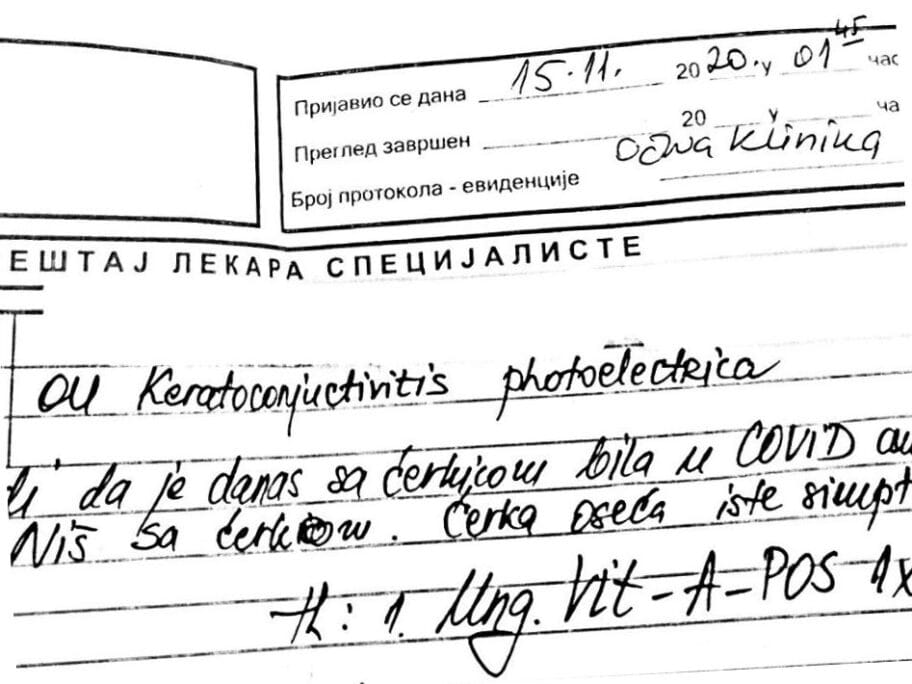 Пријавио се дана 15.11. 2020. у 01 45 час
Преглед завршен 20 у ча
Број протокола - евиденције Očna klinika
ЕШТАЈ ЛЕКАРА СПЕЦИЈАЛИСТЕ
OU Keratoconjuctivitis photoelectrica
li da je danas sa ćerkicom bila u COVID am
Niš sa ćerkom. Ćerka oseća iste simpt
Th: 1. Ung. Vit-A-POS 1x